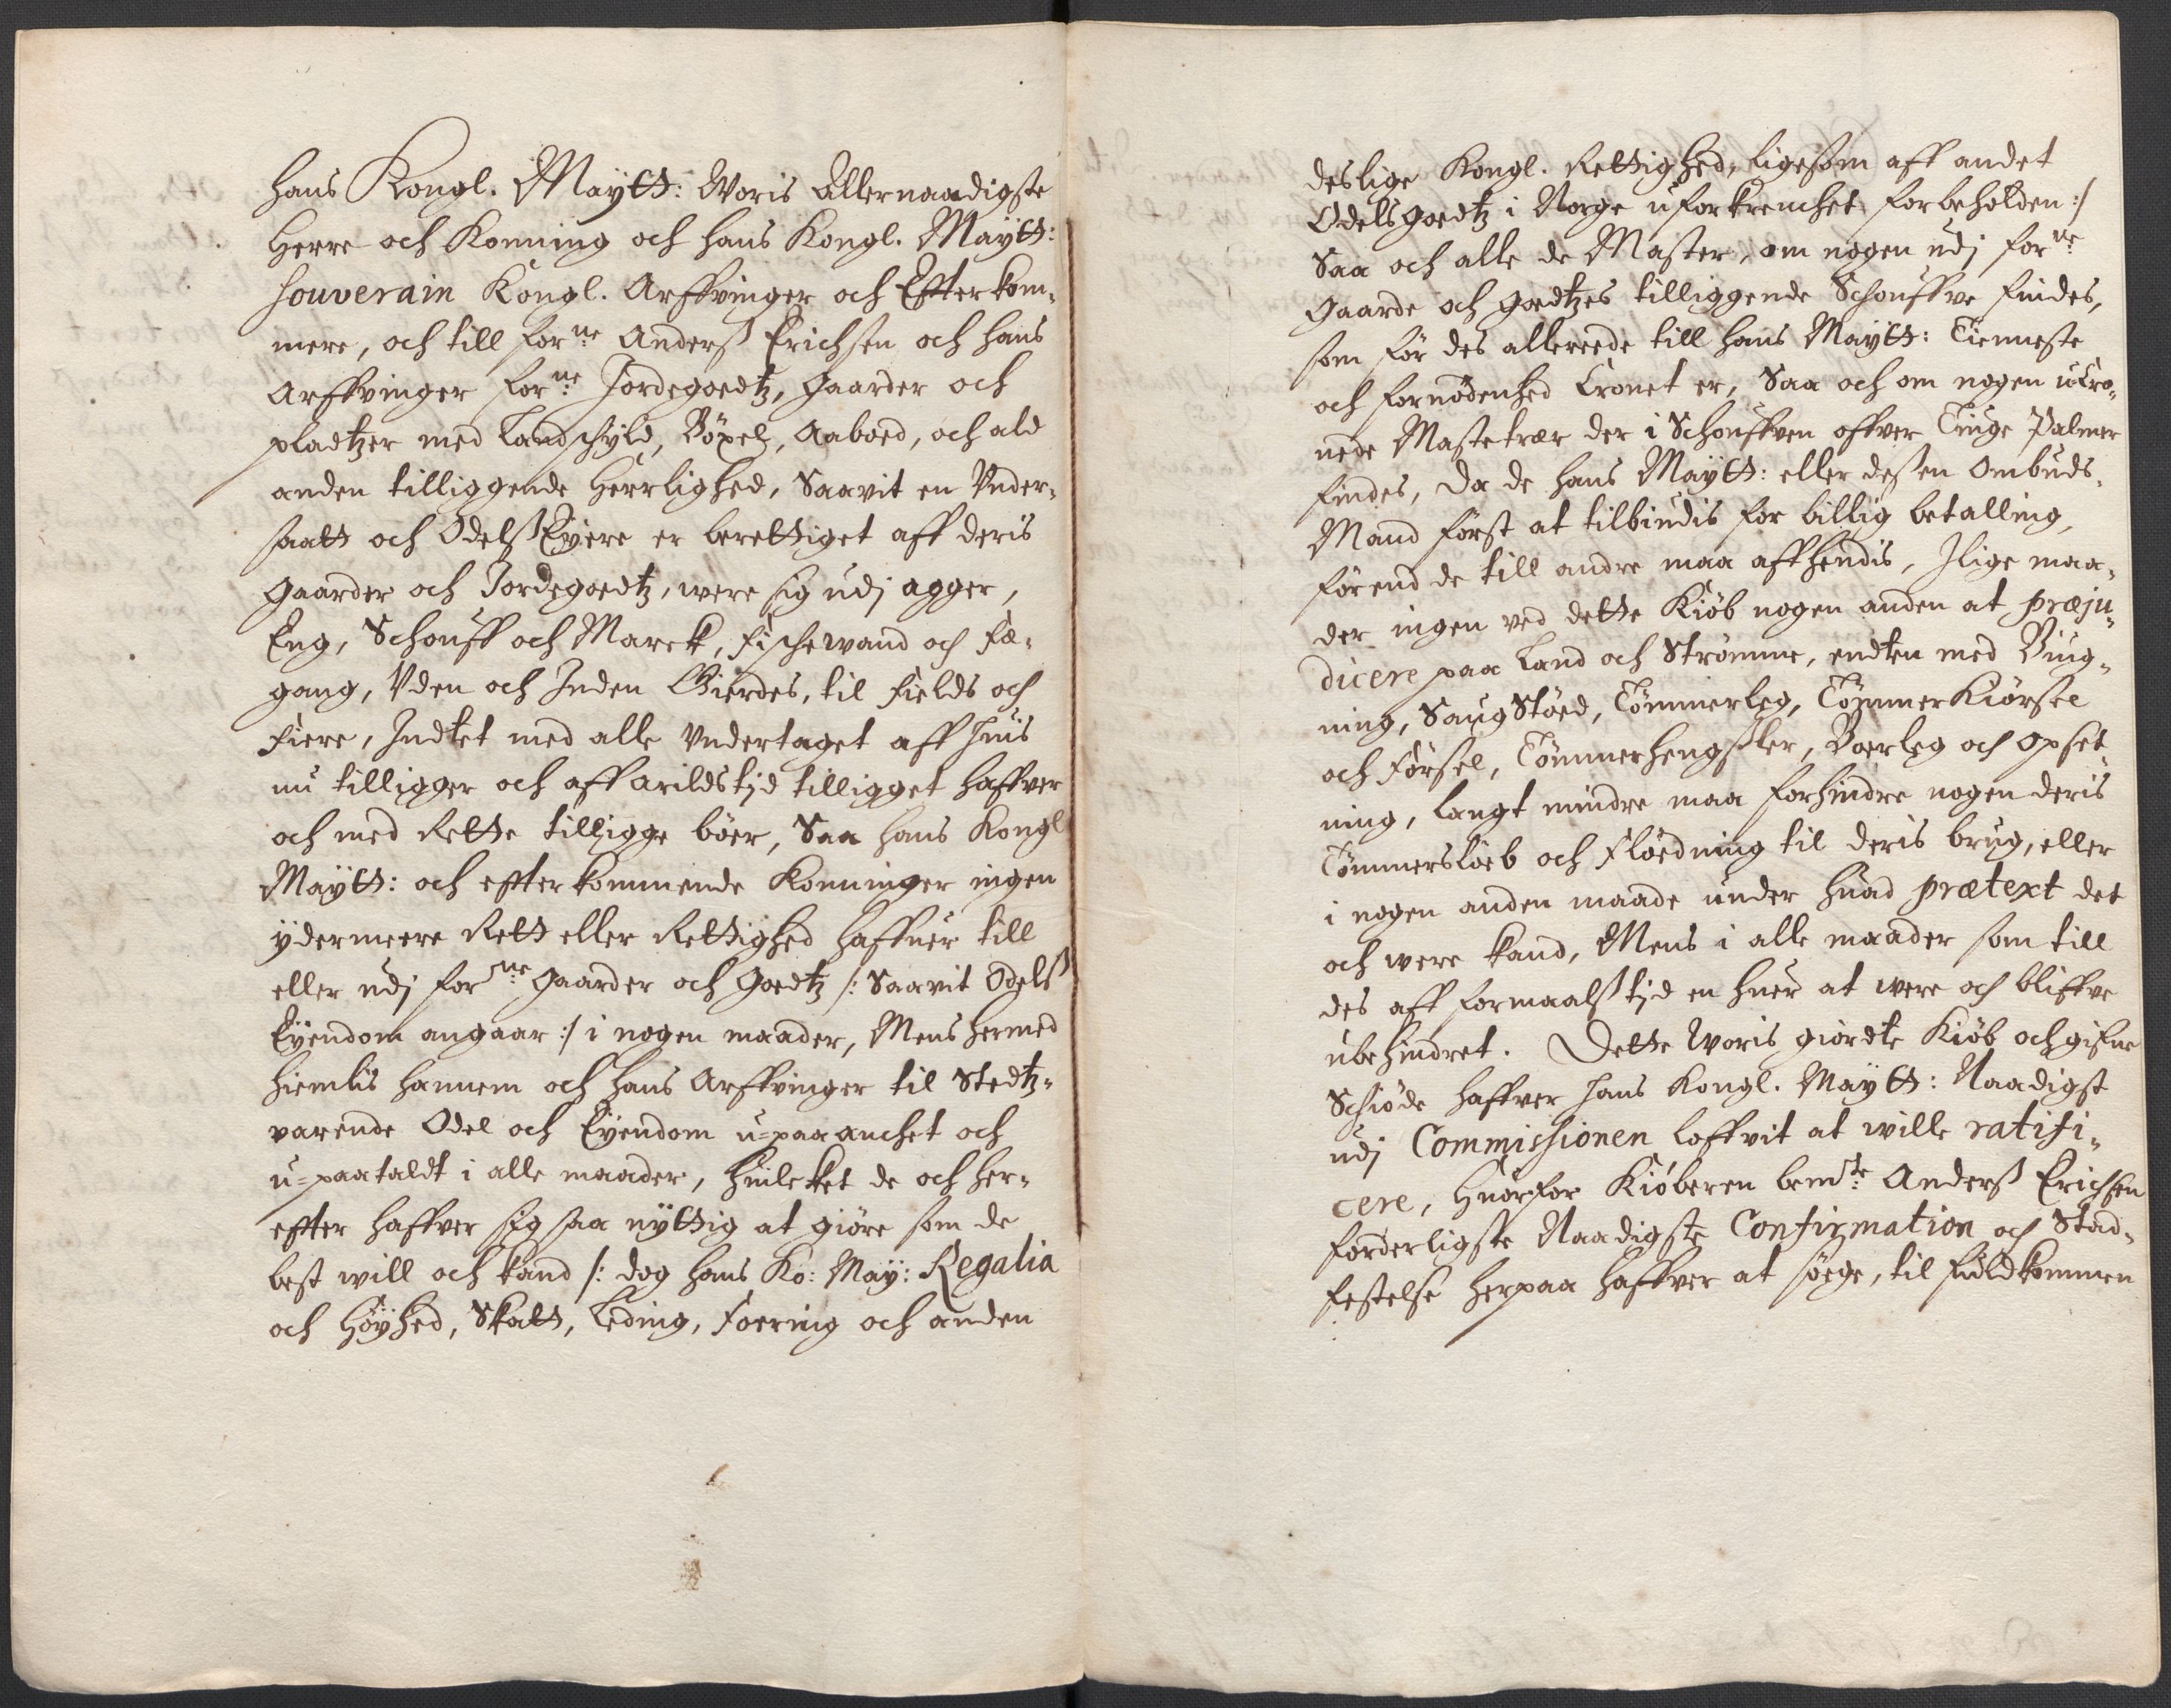 hans Kongl. Maytt: Woris Allernaadigste
Herre och Konning och hans Kongl. Maytt:
souverain Kongl. Arffvinger och Efterkom-
mere, och till forne: Anders Erichsen och hans
Arffvinger forne: Jordegoedtz, gaarder och
pladtzer med Landschyld, Böxel, Aaboed, och ald
anden tilliggende Herrlighed, Saavit en Vnder-
saatt och OdelsEyere er berettiget aff deris
gaarder och Jordegoedtz, were sig udj agger,
Eng, Schouff och Marck, fischewand och fæ-
gang, Vden och Inden Gierdes, til fields och
fiere, Indtet med alle Vndertaget aff huis
nu tilligger och aff arildstjd tilligget haffver
och med Rette tilligge böer, Saa hans Kongl
Maytt: och efterkommende Konninger ingen
ydermeere Rett eller Rettighed haffuer till
eller udj forne: gaarder och goedtz /: Saavit Odels
Eyendom angaar :/ i nogen maader, Mens hermed
hiemlis hannem och hans Arffvinger til Stedtz-
varende Odel och Eyendom u-paaanchet och
u-paataldt i alle maader, huilcket de och her-
efter haffver sig saa nyttig at giöre som de
best will och kand /: dog hans Ko: May: Regalia
och Höyhed, Skatt, Leding, foering och anden
deslige Kongl. Rettighed, ligesom aff andet
Odelsgoedtz i Norge uforkrenchet forbeholden :/
Saa och alle de Master, om nogen udj forne:
gaarde och goedtzes tilliggende Schouffve findes,
som för des allereede till hans Maytt: Tienneste
och fornödenhed Cronet er, Saa och om nogen ucro-
nede Mastetrær der i Schouffven offver Tiuge Palmer
findes, Da de hans Maytt: eller dessen Ombuds-
Mand först at tilbiudis for billig betalling,
förend de till andre maa affhendis, Ilige maa-
der ingen ved dette Kiöb nogen anden at præju-
dicere paa Land och Strömme, endten med Byg-
ning, SaugStöed, Tömmerleg, TömmerKiörsel
och Förssel, Tömmerhengsler, Boerleg och opset-
ning, langt mindre maa forhindre nogen deris
Tömmerslöeb och Flöedning til deris brug, eller
i nogen anden maade under huad prætext det
och were kand, Mens i alle maader som till
des aff formaals tjd en huer at were och bliffve
ubehindret. Dette Woris giordte Kiöb och gifne
Schiöde haffver hans Kongl. Maytt: Naadigst
udj Commissionen loffvit at wille ratifi-
cere, huorfor Kiöberen bemte: Anders Erichsen
forderligste Naadigste Confirmation och Stad-
festelse herpaa haffver at söege, til fuldkommen